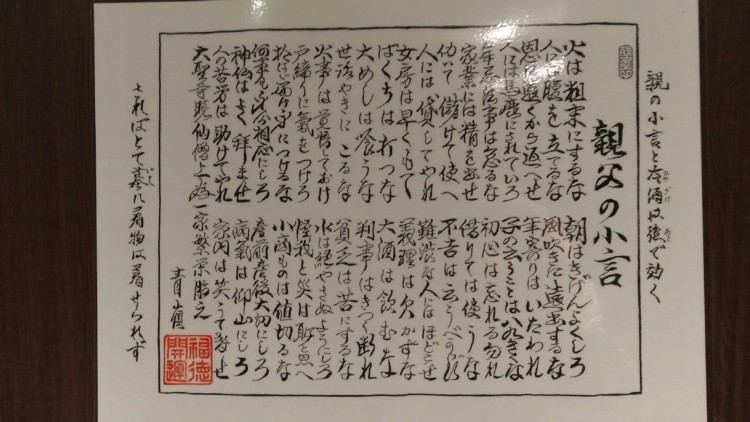 親の小言と冷酒は後で効く
親父の小言
火は粗末にするな 朝はきげんよくしろ
人には腹を立てるな 風吹きに遠出するな
恩は遠くから返へせ 年寄りはいたわれ
人には馬鹿にされていろ 子の云うことは八九きくな
年忌法事は怠るな 初心は忘れる勿れ
家業には精を出せ 借りては使うな
仂いて儲けて使へ 不吉は云うべからず
人には貸してやれ 難渋な人にはほどこせ
女房は早くもて 義理は欠かすな
ばくちは打つな 大酒は飲むな
大めしは喰うな 判事はきつく断れ
世話やきにこるな 貧乏は苦にするな
火事は覚悟しておけ 水は絶やさぬようにしろ
戸締りに氣をつけろ 怪我と災は恥と思へ
拾はば届け身につけるな 小商ものは値切るな
何事も身分相応にしろ 産前産後大切にしろ
神仏はよく拝ませ 病氣は仰山にしろ
人の苦労は助けてやれ 家内は笑うて暮せ
大聖寺暁仙僧上 一家繁栄
福徳
開運
さればとて墓に着物は着せられず